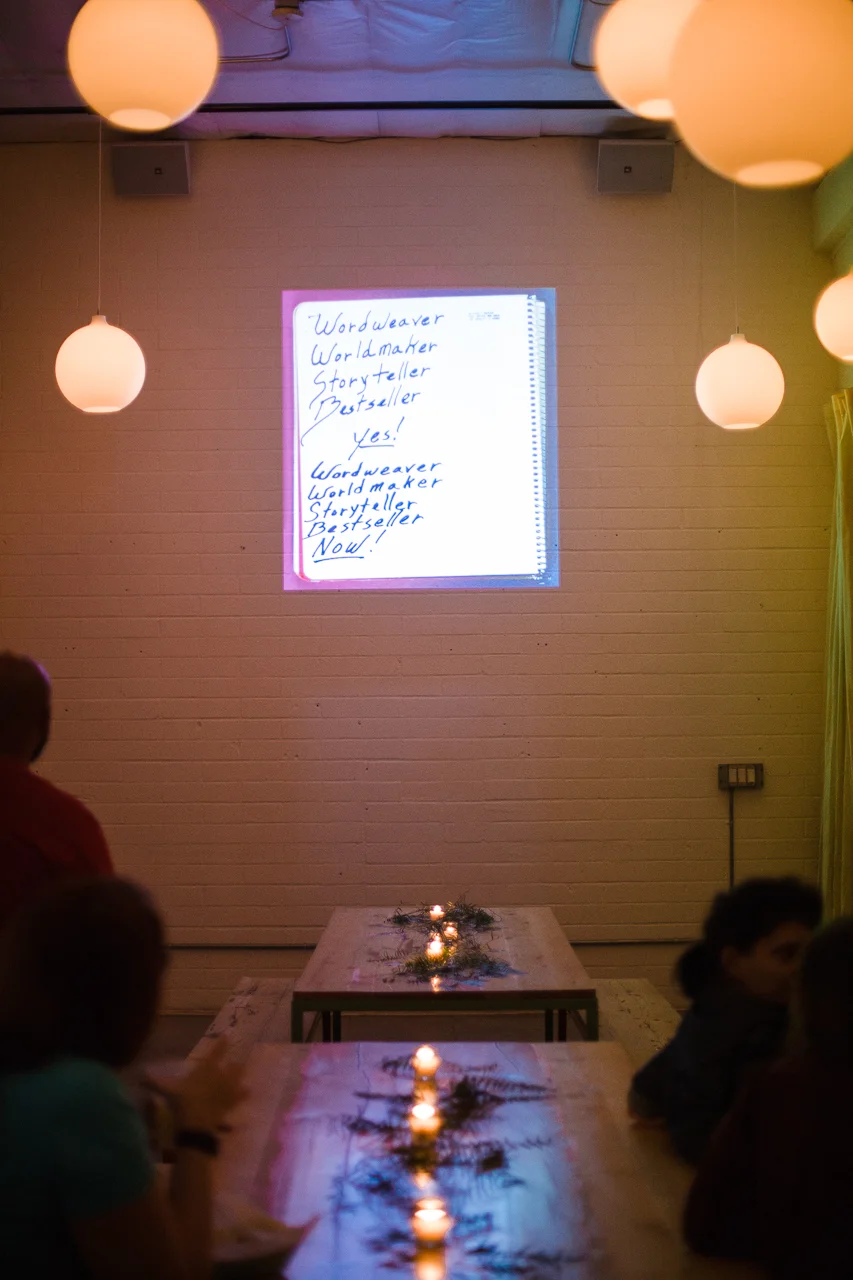 Wordweaver
Worldmaker
Storyteller
Bestseller
Yes!
Wordweaver
Worldmaker
Storyteller
Bestseller
Now!